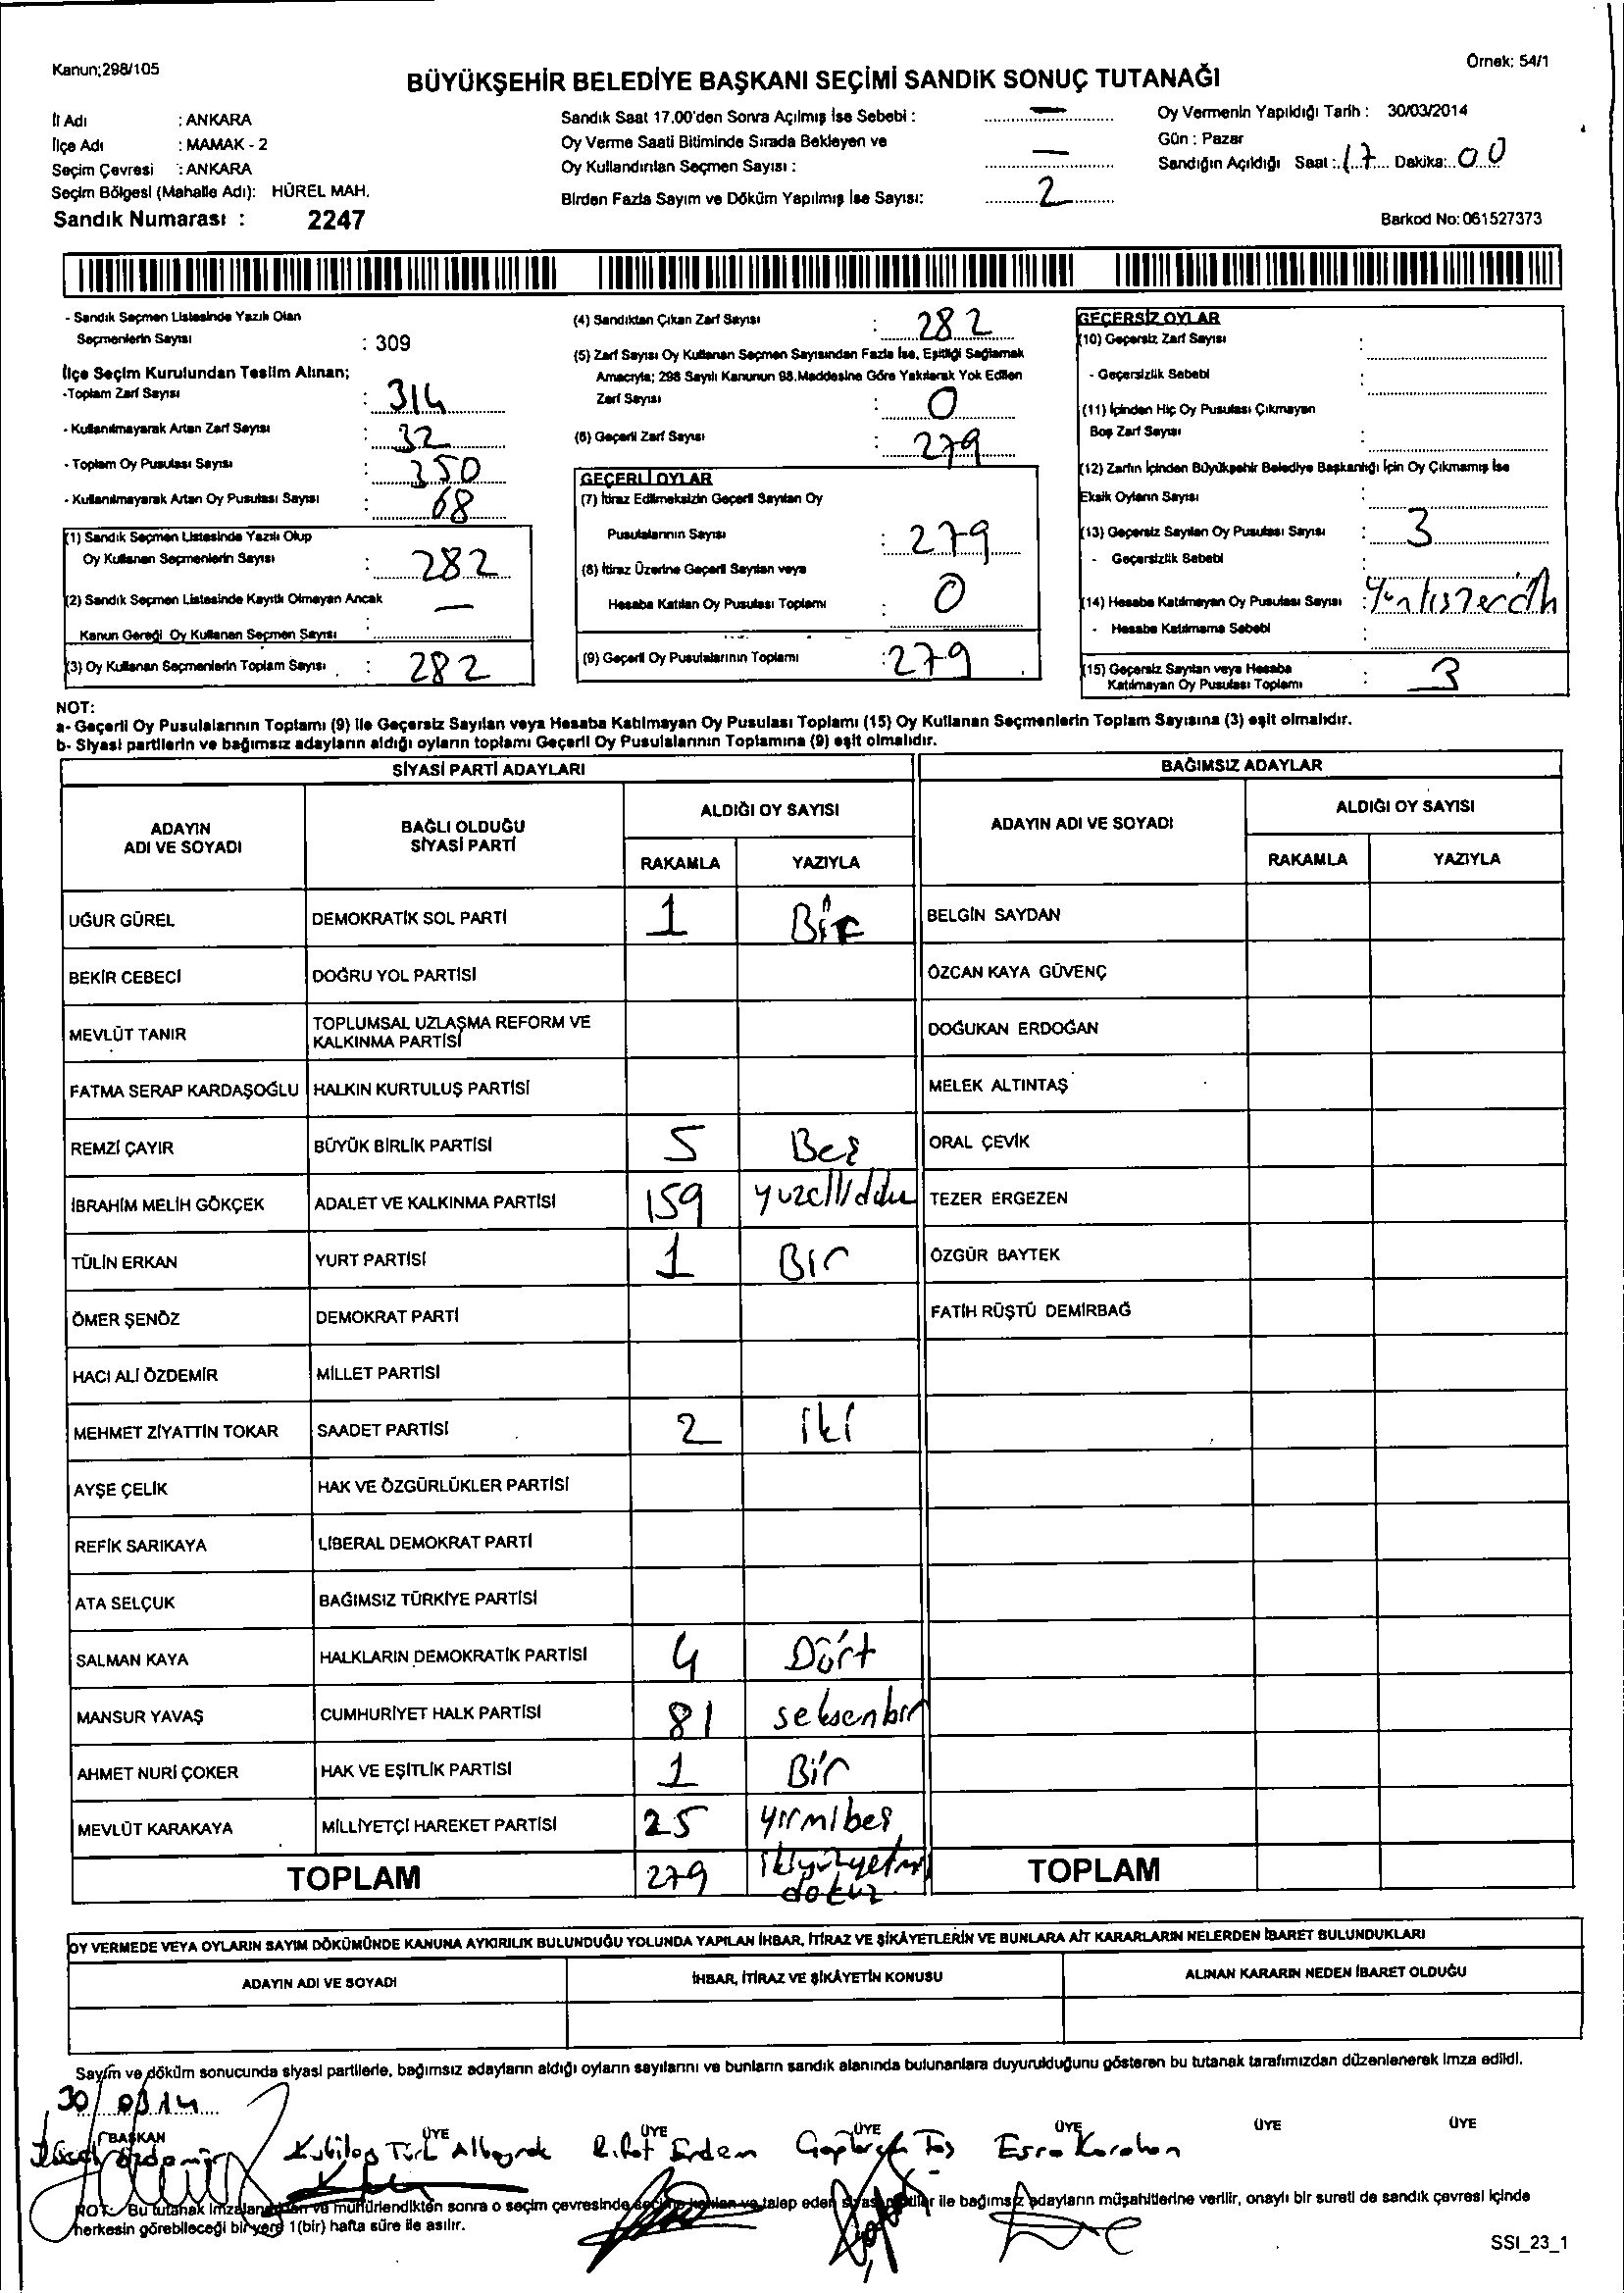 Kanun;298/105
Örnek: 54/1
BÜYÜKŞEHİR BELEDİYE BAŞKANI SEÇİMİ SANDIK SONUÇ TUTANAĞI
İl Adı : ANKARA
İlçe Adı : MAMAK - 2
Seçim Çevresi : ANKARA
Seçim Bölgesi (Mahalle Adı): HÜREL MAH.
Sandık Numarası : 2247
Sandık Saat 17.00'den Sonra Açılmış İse Sebebi : —
Oy Verme Saati Bitiminde Sırada Bekleyen ve
Oy Kullandırılan Seçmen Sayısı : —
Birden Fazla Sayım ve Döküm Yapılmış İse Sayısı: 2
Oy Vermenin Yapıldığı Tarih : 30/03/2014
Gün : Pazar
Sandığın Açıldığı Saat : 17 Dakika: 00
Barkod No: 061527373
- Sandık Seçmen Listesinde Yazılı Olan
Seçmenlerin Sayısı : 309
İlçe Seçim Kurulundan Teslim Alınan;
-Toplam Zarf Sayısı : 314
- Kullanılmayarak Artan Zarf Sayısı : 32
- Toplam Oy Pusulası Sayısı : 350
- Kullanılmayarak Artan Oy Pusulası Sayısı : 68
(1) Sandık Seçmen Listesinde Yazılı Olup
Oy Kullanan Seçmenlerin Sayısı : 282
(2) Sandık Seçmen Listesinde Kayıtlı Olmayan Ancak
Kanun Gereği Oy Kullanan Seçmen Sayısı : —
(3) Oy Kullanan Seçmenlerin Toplam Sayısı : 282
(4) Sandıktan Çıkan Zarf Sayısı : 282
(5) Zarf Sayısı Oy Kullanan Seçmen Sayısından Fazla İse, Eşitliği Sağlamak
Amacıyla; 298 Sayılı Kanunun 98.Maddesine Göre Yakılarak Yok Edilen
Zarf Sayısı : 0
(6) Geçerli Zarf Sayısı : 279
GEÇERLİ OYLAR
(7) İtiraz Edilmeksizin Geçerli Sayılan Oy
Pusulalarının Sayısı : 279
(8) İtiraz Üzerine Geçerli Sayılan veya
Hesaba Katılan Oy Pusulası Toplamı : 0
(9) Geçerli Oy Pusulalarının Toplamı : 279
GEÇERSİZ OYLAR
(10) Geçersiz Zarf Sayısı :
- Geçersizlik Sebebi :
(11) İçinden Hiç Oy Pusulası Çıkmayan
Boş Zarf Sayısı :
(12) Zarfın İçinden Büyükşehir Belediye Başkanlığı İçin Oy Çıkmamış İse
Eksik Oyların Sayısı :
(13) Geçersiz Sayılan Oy Pusulası Sayısı : 3
- Geçersizlik Sebebi :
(14) Hesaba Katılmayan Oy Pusulası Sayısı :
- Hesaba Katılmama Sebebi :
(15) Geçersiz Sayılan veya Hesaba
Katılmayan Oy Pusulası Toplamı : 3
NOT:
a- Geçerli Oy Pusulalarının Toplamı (9) ile Geçersiz Sayılan veya Hesaba Katılmayan Oy Pusulası Toplamı (15) Oy Kullanan Seçmenlerin Toplam Sayısına (3) eşit olmalıdır.
b- Siyasi partilerin ve bağımsız adayların aldığı oyların toplamı Geçerli Oy Pusulalarının Toplamına (9) eşit olmalıdır.
SİYASİ PARTİ ADAYLARI
BAĞIMSIZ ADAYLAR
ADAYIN ADI VE SOYADI
BAĞLI OLDUĞU SİYASİ PARTİ
ALDIĞI OY SAYISI
RAKAMLA YAZIYLA
ADAYIN ADI VE SOYADI
ALDIĞI OY SAYISI
RAKAMLA YAZIYLA
UĞUR GÜREL DEMOKRATİK SOL PARTİ 1 Bir BELGİN SAYDAN
BEKİR CEBECİ DOĞRU YOL PARTİSİ ÖZCAN KAYA GÜVENÇ
MEVLÜT TANIR TOPLUMSAL UZLAŞMA REFORM VE KALKINMA PARTİSİ DOĞUKAN ERDOĞAN
FATMA SERAP KARDAŞOĞLU HALKIN KURTULUŞ PARTİSİ MELEK ALTINTAŞ
REMZİ ÇAYIR BÜYÜK BİRLİK PARTİSİ 5 Beş ORAL ÇEVİK
İBRAHİM MELİH GÖKÇEK ADALET VE KALKINMA PARTİSİ 159 TEZER ERGEZEN
TÜLİN ERKAN YURT PARTİSİ 1 Bir ÖZGÜR BAYTEK
ÖMER ŞENÖZ DEMOKRAT PARTİ FATİH RÜŞTÜ DEMİRBAĞ
HACI ALİ ÖZDEMİR MİLLET PARTİSİ
MEHMET ZİYATTİN TOKAR SAADET PARTİSİ 2 iki
AYŞE ÇELİK HAK VE ÖZGÜRLÜKLER PARTİSİ
REFİK SARIKAYA LİBERAL DEMOKRAT PARTİ
ATA SELÇUK BAĞIMSIZ TÜRKİYE PARTİSİ
SALMAN KAYA HALKLARIN DEMOKRATİK PARTİSİ 4 Dört
MANSUR YAVAŞ CUMHURİYET HALK PARTİSİ 81 seksenbir
AHMET NURİ ÇOKER HAK VE EŞİTLİK PARTİSİ 1 Bir
MEVLÜT KARAKAYA MİLLİYETÇİ HAREKET PARTİSİ 25 yirmibeş
TOPLAM 279 ikiyüzyetmiş dokuz TOPLAM
OY VERMEDE VEYA OYLARIN SAYIM DÖKÜMÜNDE KANUNA AYKIRILIK BULUNDUĞU YOLUNDA YAPILAN İHBAR, İTİRAZ VE ŞİKÂYETLERİN VE BUNLARA AİT KARARLARIN NELERDEN İBARET BULUNDUKLARI
ADAYIN ADI VE SOYADI İHBAR, İTİRAZ VE ŞİKÂYETİN KONUSU ALINAN KARARIN NEDEN İBARET OLDUĞU
Sayım ve döküm sonucunda siyasi partilerle, bağımsız adayların aldığı oyların sayılarını ve bunların sandık alanında bulunanlara duyurulduğunu gösteren bu tutanak tarafımızdan düzenlenerek imza edildi.
30/03/14
BAŞKAN ÜYE ÜYE ÜYE ÜYE ÜYE ÜYE
Özdemir Kubilay Türk Albayrak Rıfat Erden Gökberk Taş Esra Karahan
NOT: Bu tutanak imzalandıktan ve mühürlendikten sonra o seçim çevresinde seçime katılan ve talep eden siyasi partiler ile bağımsız adayların müşahitlerine verilir, onaylı bir sureti de sandık çevresi içinde
herkesin görebileceği bir yere 1(bir) hafta süre ile asılır.
SSI_23_1